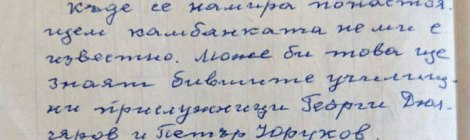 Къде се намира понастоя-
щем камбанката не ми е
известно. Може би това ще
знаят бившите училищ-
ни прислужници Георги Дюл-
геров и Петър Юруков.